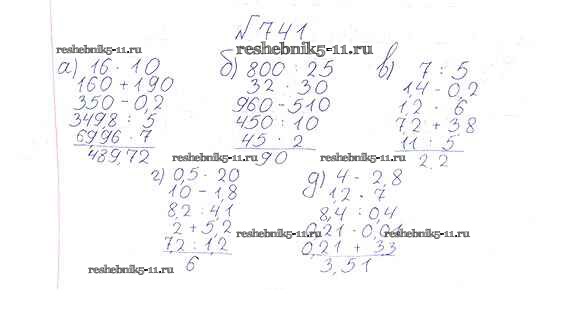 №741
reshebnik5-11.ru
reshebnik5-11.ru
а) 16 · 10
160 + 190
350 - 0,2
349,8 : 5
69,96 · 7
489,72
б) 800 : 25
32 · 30
960 - 510
450 : 10
45 · 2
90
в) 7 : 5
1,4 - 0,2
1,2 · 6
7,2 + 3,8
11 : 5
2,2
reshebnik5-11.ru
reshebnik5-11.ru
г) 0,5 · 20
10 - 1,8
8,2 : 4,1
2 + 5,2
7,2 : 1,2
6
д) 4 - 2,8
1,2 · 7
8,4 : 0,4
0,21 + 3,3
3,51
reshebnik5-11.ru
reshebnik5-11.ru